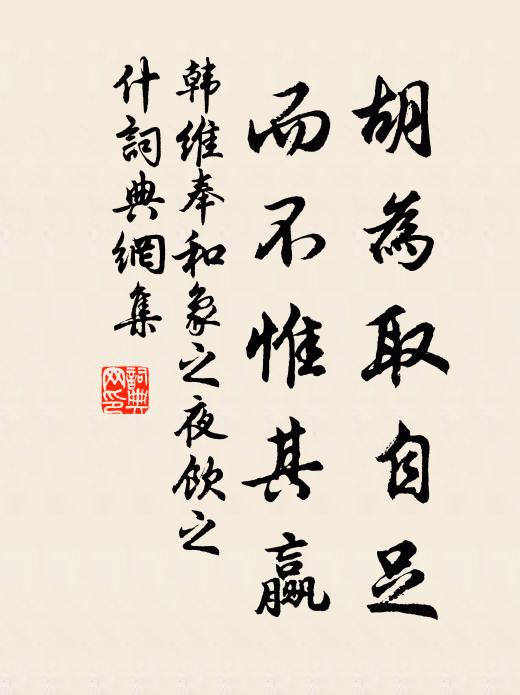 胡為取自足
而不惟其贏
韩維奉和象之夜飲之
什詞典網集
詞典網印